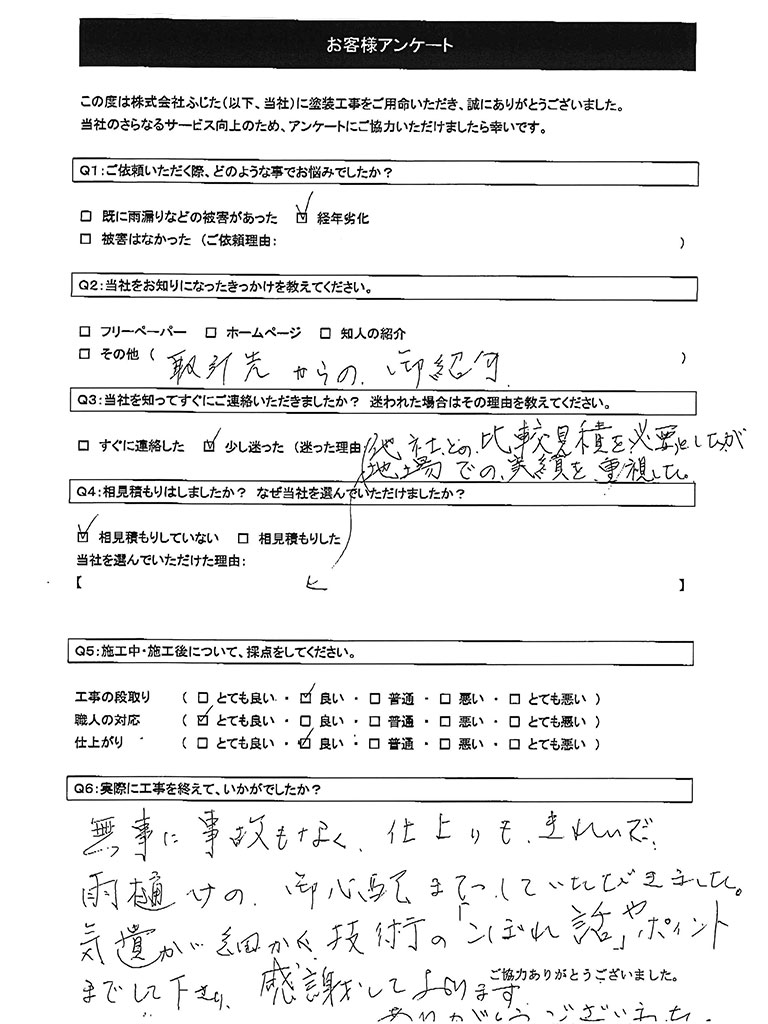 お客様アンケート
この度は株式会社ふじた(以下、当社)に塗装工事をご用命いただき、誠にありがとうございました。
当社のさらなるサービス向上のため、アンケートにご協力いただけましたら幸いです。
Q1:ご依頼いただく際、どのような事でお悩みでしたか?
□ 既に雨漏りなどの被害があった ☑ 経年劣化
□ 被害はなかった (ご依頼理由: )
Q2:当社をお知りになったきっかけを教えてください。
□ フリーペーパー □ ホームページ □ 知人の紹介
□ その他 ( 取引先からの、御紹介 )
Q3:当社を知ってすぐにご連絡いただきましたか? 迷われた場合はその理由を教えてください。
□ すぐに連絡した ☑ 少し迷った (迷った理由 他社との、比較見積を必要としたが
地場での、実績を重視した。
Q4:相見積もりはしましたか? なぜ当社を選んでいただけましたか?
☑ 相見積もりしていない □ 相見積もりした
当社を選んでいただけた理由:
【 】
Q5:施工中・施工後について、採点をしてください。
工事の段取り ( □ とても良い ・ ☑ 良い ・ □ 普通 ・ □ 悪い ・ □ とても悪い )
職人の対応 ( ☑ とても良い ・ □ 良い ・ □ 普通 ・ □ 悪い ・ □ とても悪い )
仕上がり ( □ とても良い ・ ☑ 良い ・ □ 普通 ・ □ 悪い ・ □ とても悪い )
Q6:実際に工事を終えて、いかがでしたか?
無事に事故もなく、仕上りも、きれいだ、
雨樋の、御心配までしていただきました。
気遣が細かく技術の「こぼれ話」やポイント
までして下さり、感謝をしております
ご協力ありがとうございました。
ありがとうございました。